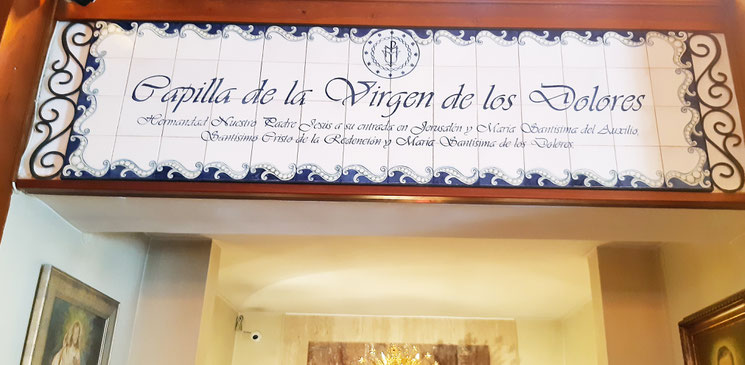 Capilla de la Virgen de los Dolores
Hermandad Nuestro Padre Jesús a su entrada en Jerusalén y María Santísima del Auxilio,
Santísimo Cristo de la Redención y María Santísima de los Dolores.